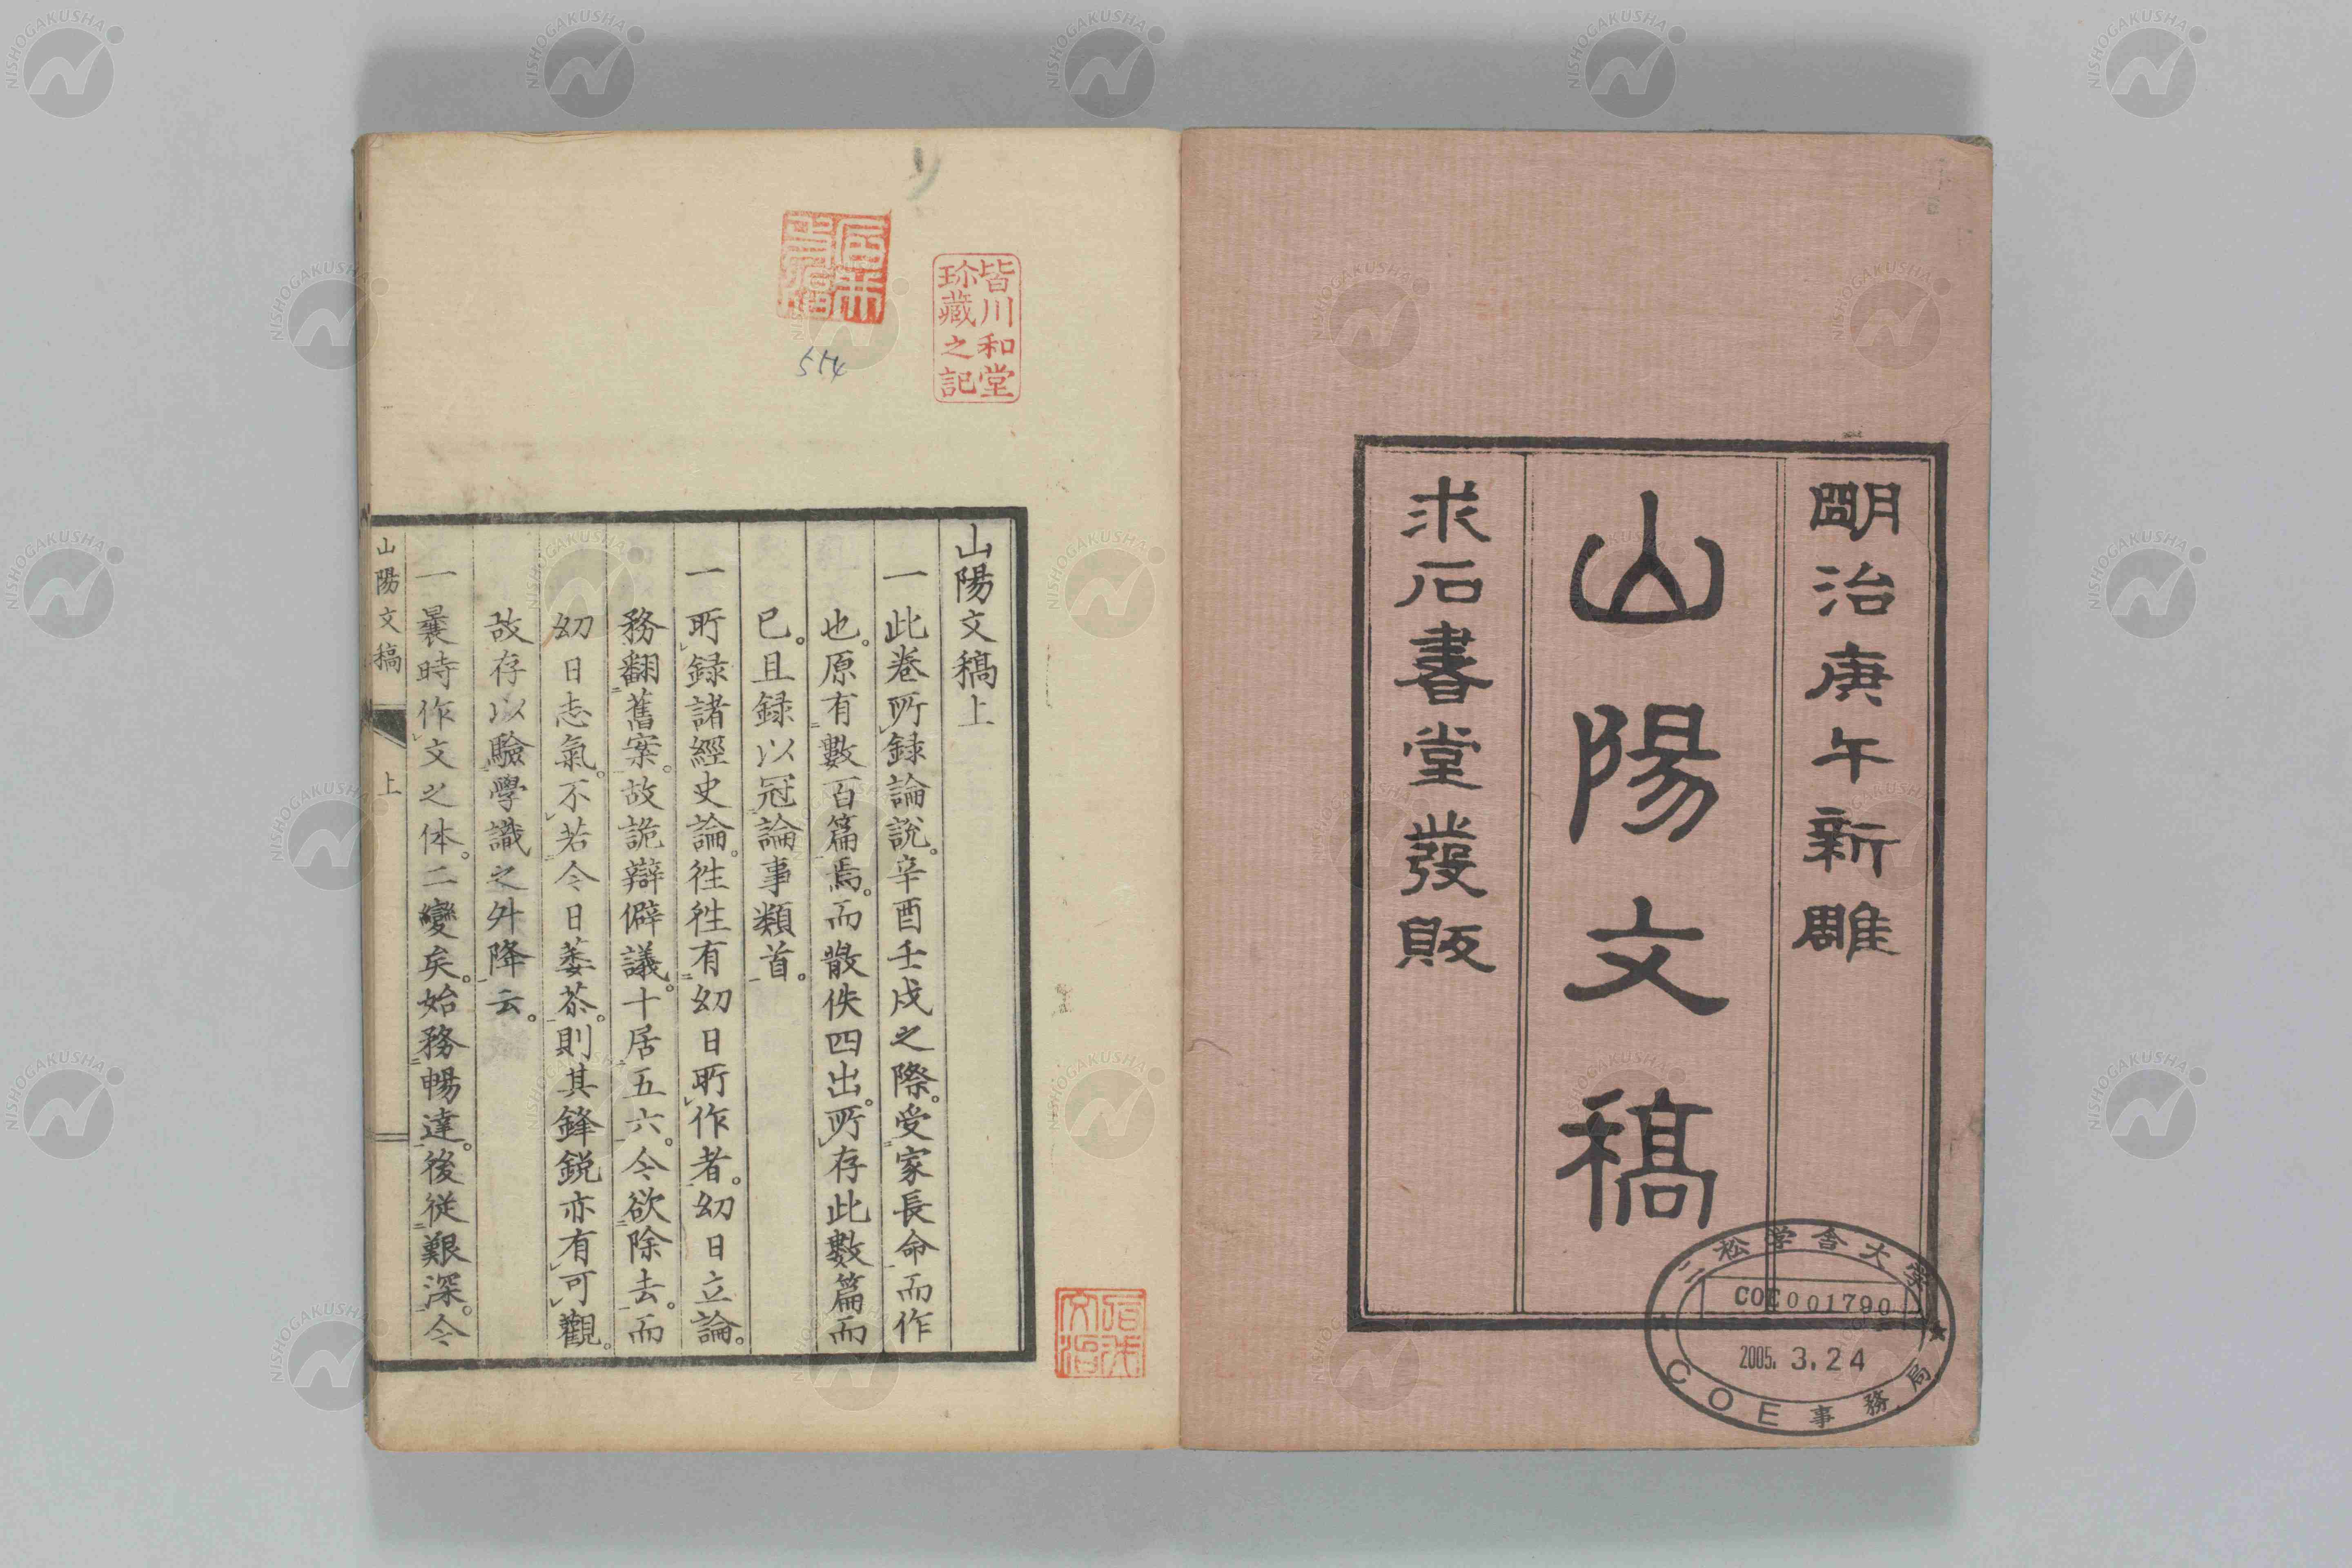 明治庚午新雕
山陽文稿
求石書堂發販
二松学舎大学
COE001790
2005. 3. 24
COE事務局
皆川和堂
珍藏之記
554
山陽文稿上
一此巻所録論説。辛酉壬戌之際。受家長命而作
也。原有數百篇焉。而散佚四出。所存此數篇而
已。且録以冠論事類首。
一所録諸經史論。往往有幼日所作者。幼日立論。
務翻舊案。故詭辯僻議。十居五六。今欲除去。而
幼日志氣。不若今日萎苶。則其鋒鋭亦有可觀。
故存以驗學識之升降云。
一曩時作文之体。二變矣。始務暢達。後従艱深。今
山陽文稿 上
NISHOGAKUSHA